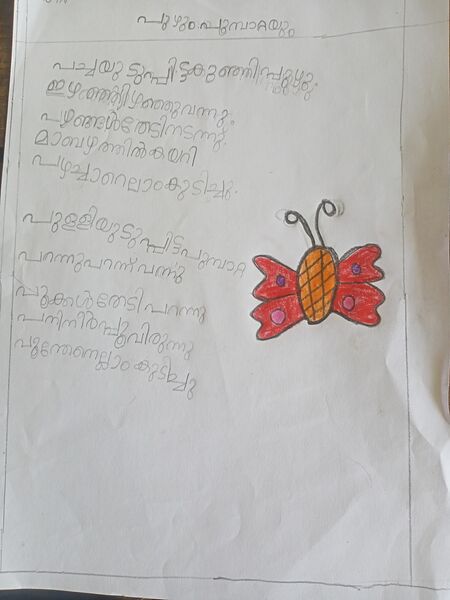 പുഴും പൂമ്പാറ്റയും
പച്ചയുടുപ്പിട്ട കുഞ്ഞിപ്പുഴു.
ഇഴഞ്ഞിഴഞ്ഞു വന്നു.
പഴങ്ങൾ തേടി നടന്നു.
മാമ്പഴത്തിൽ കയറി
പഴച്ചാറെല്ലാം കുടിച്ചു.
പുള്ളിയുടുപ്പിട്ട പൂമ്പാറ്റ
പറന്നു പറന്ന് വന്നു
പൂക്കൾ തേടി പറന്നു
പനിനീർപ്പൂവിരുന്നു
പൂന്തേനെല്ലാം കുടിച്ചു